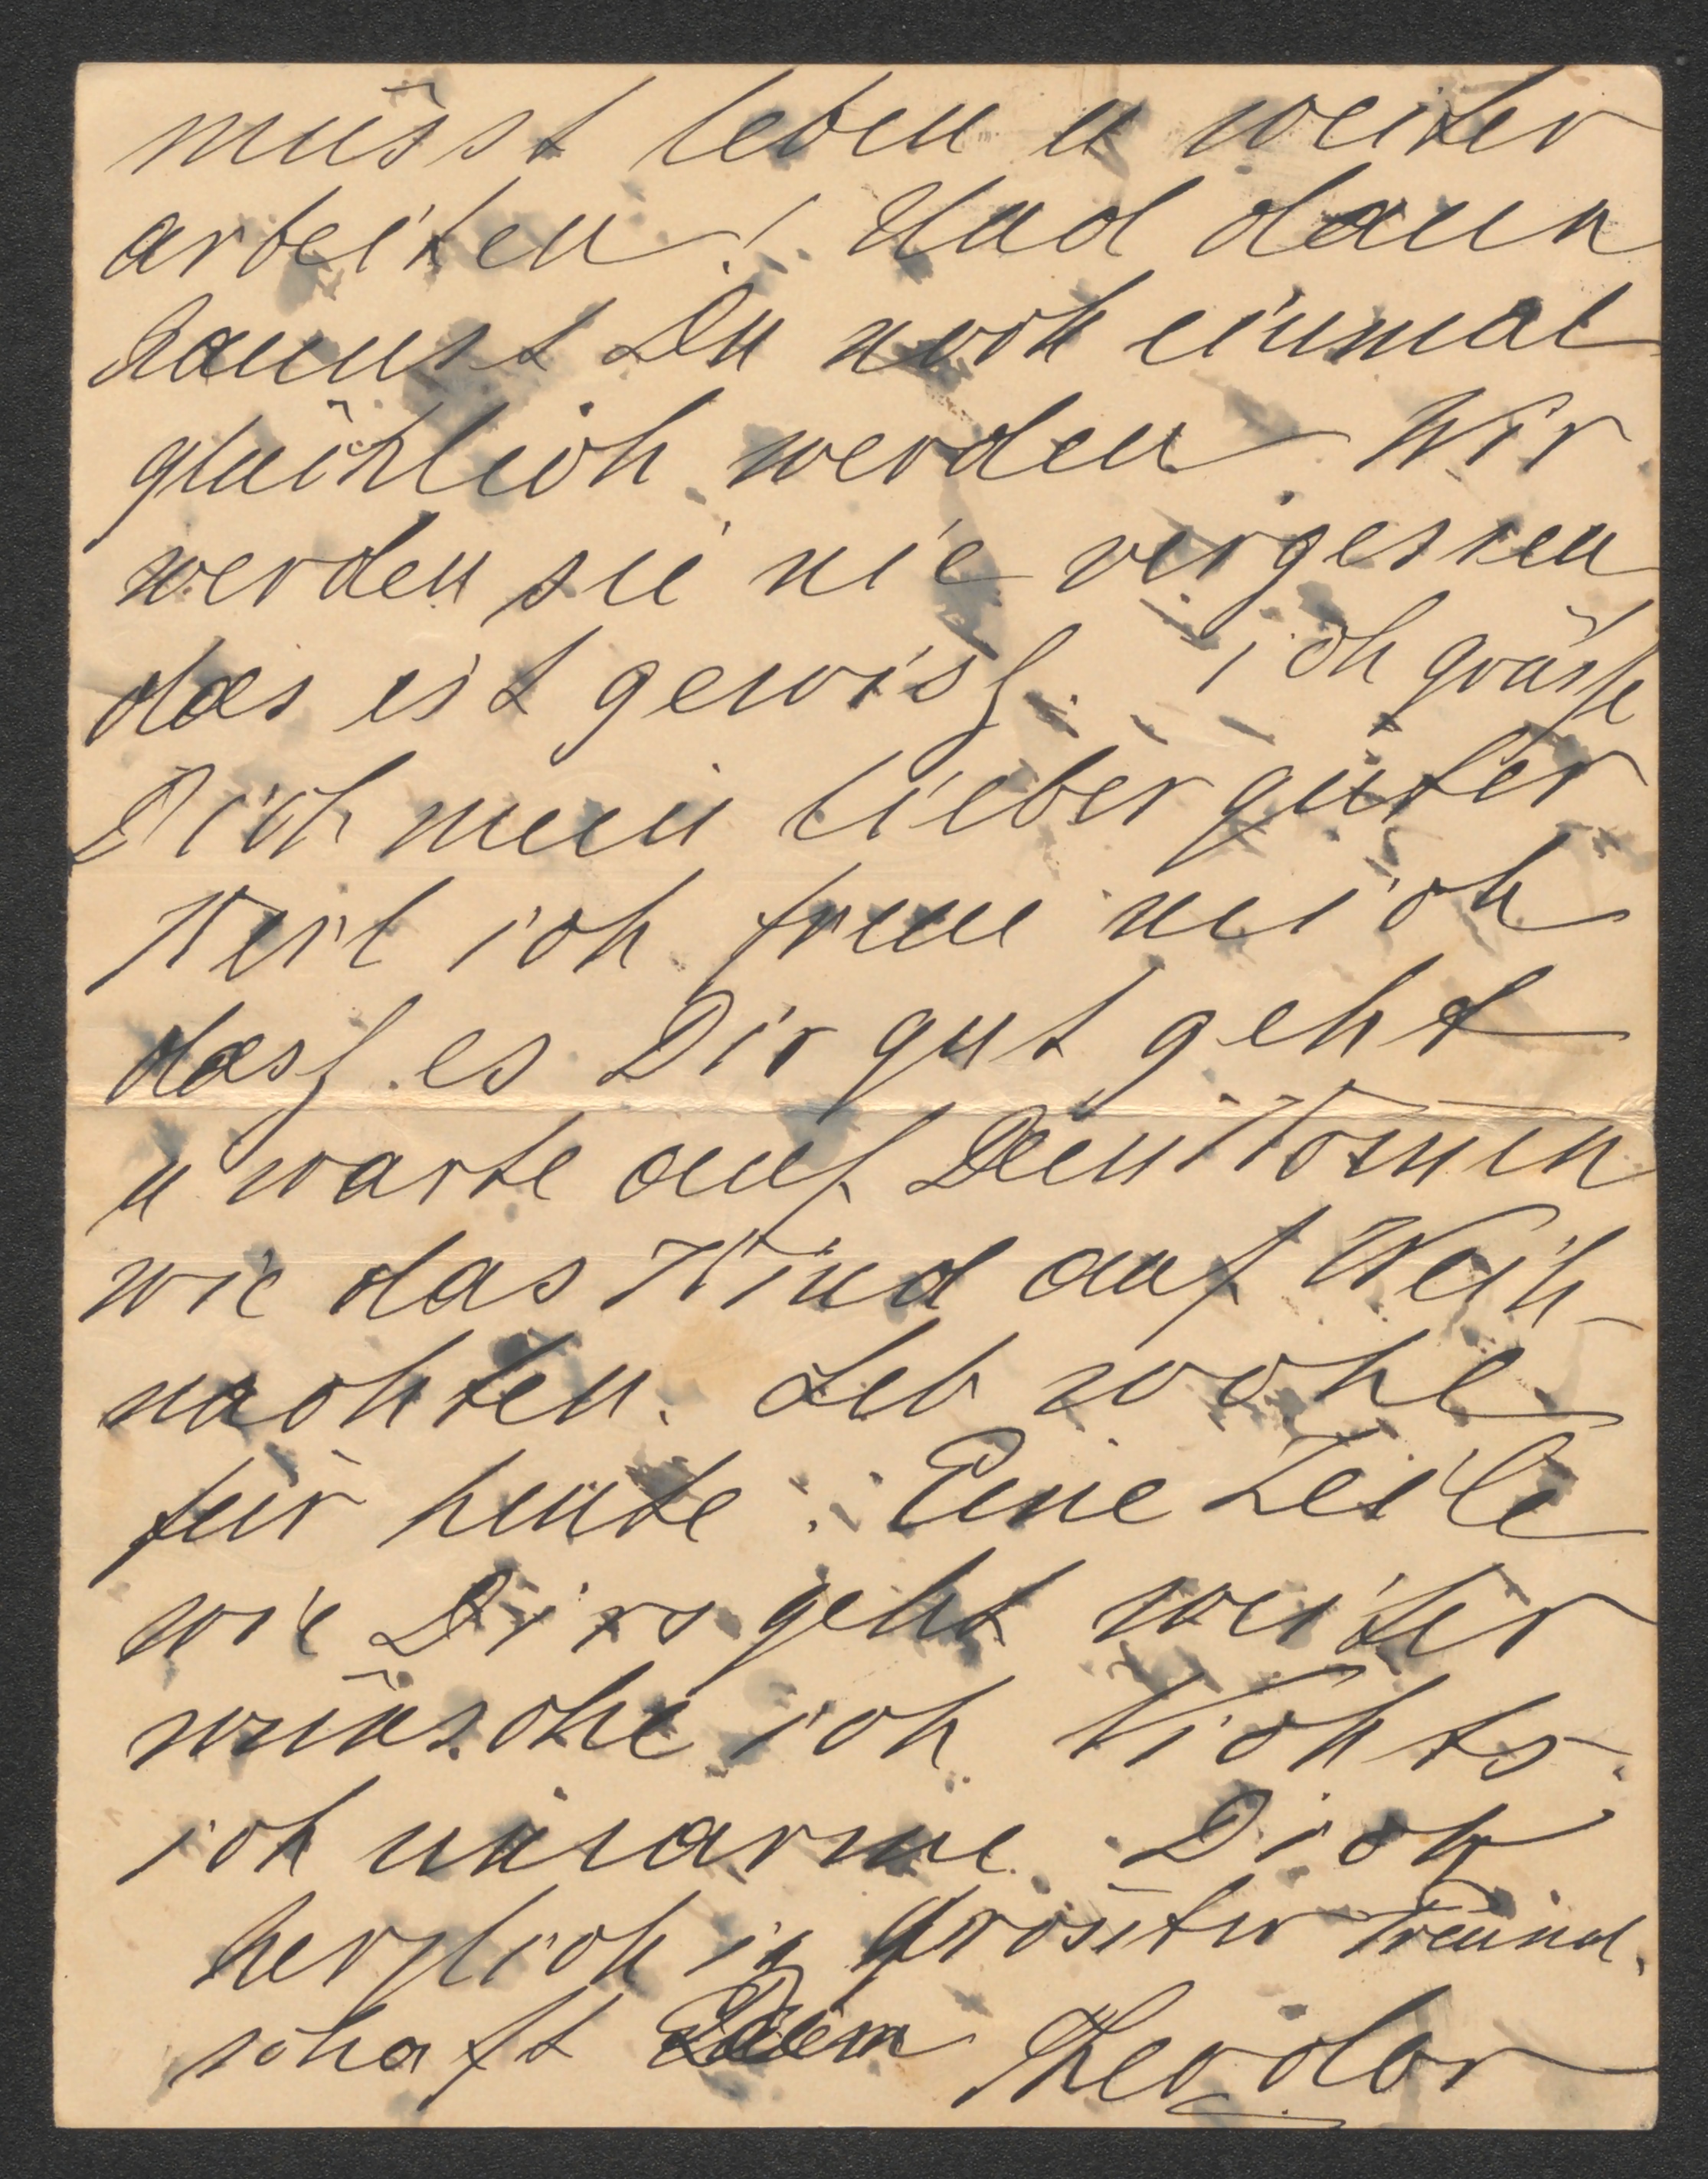 müsst leben u weiter
arbeiten! Und dann
kannst Du noch einmal
glücklich werden Wir
werden sie nie vergessen
das ist gewiß. – ich grüsse
Dich mein lieber guter
Kerl ich freue mich
daß es Dir gut geht
u warte auf Dein Komen
wie das Kind auf Weih-
nachten. Leb wohl
für heute: Eine Zeile
wie Dirs geht weiter
wünsche ich Nichts.
ich umarme Dich
herzlich in grösster Freund-
schaft Dein Theodor